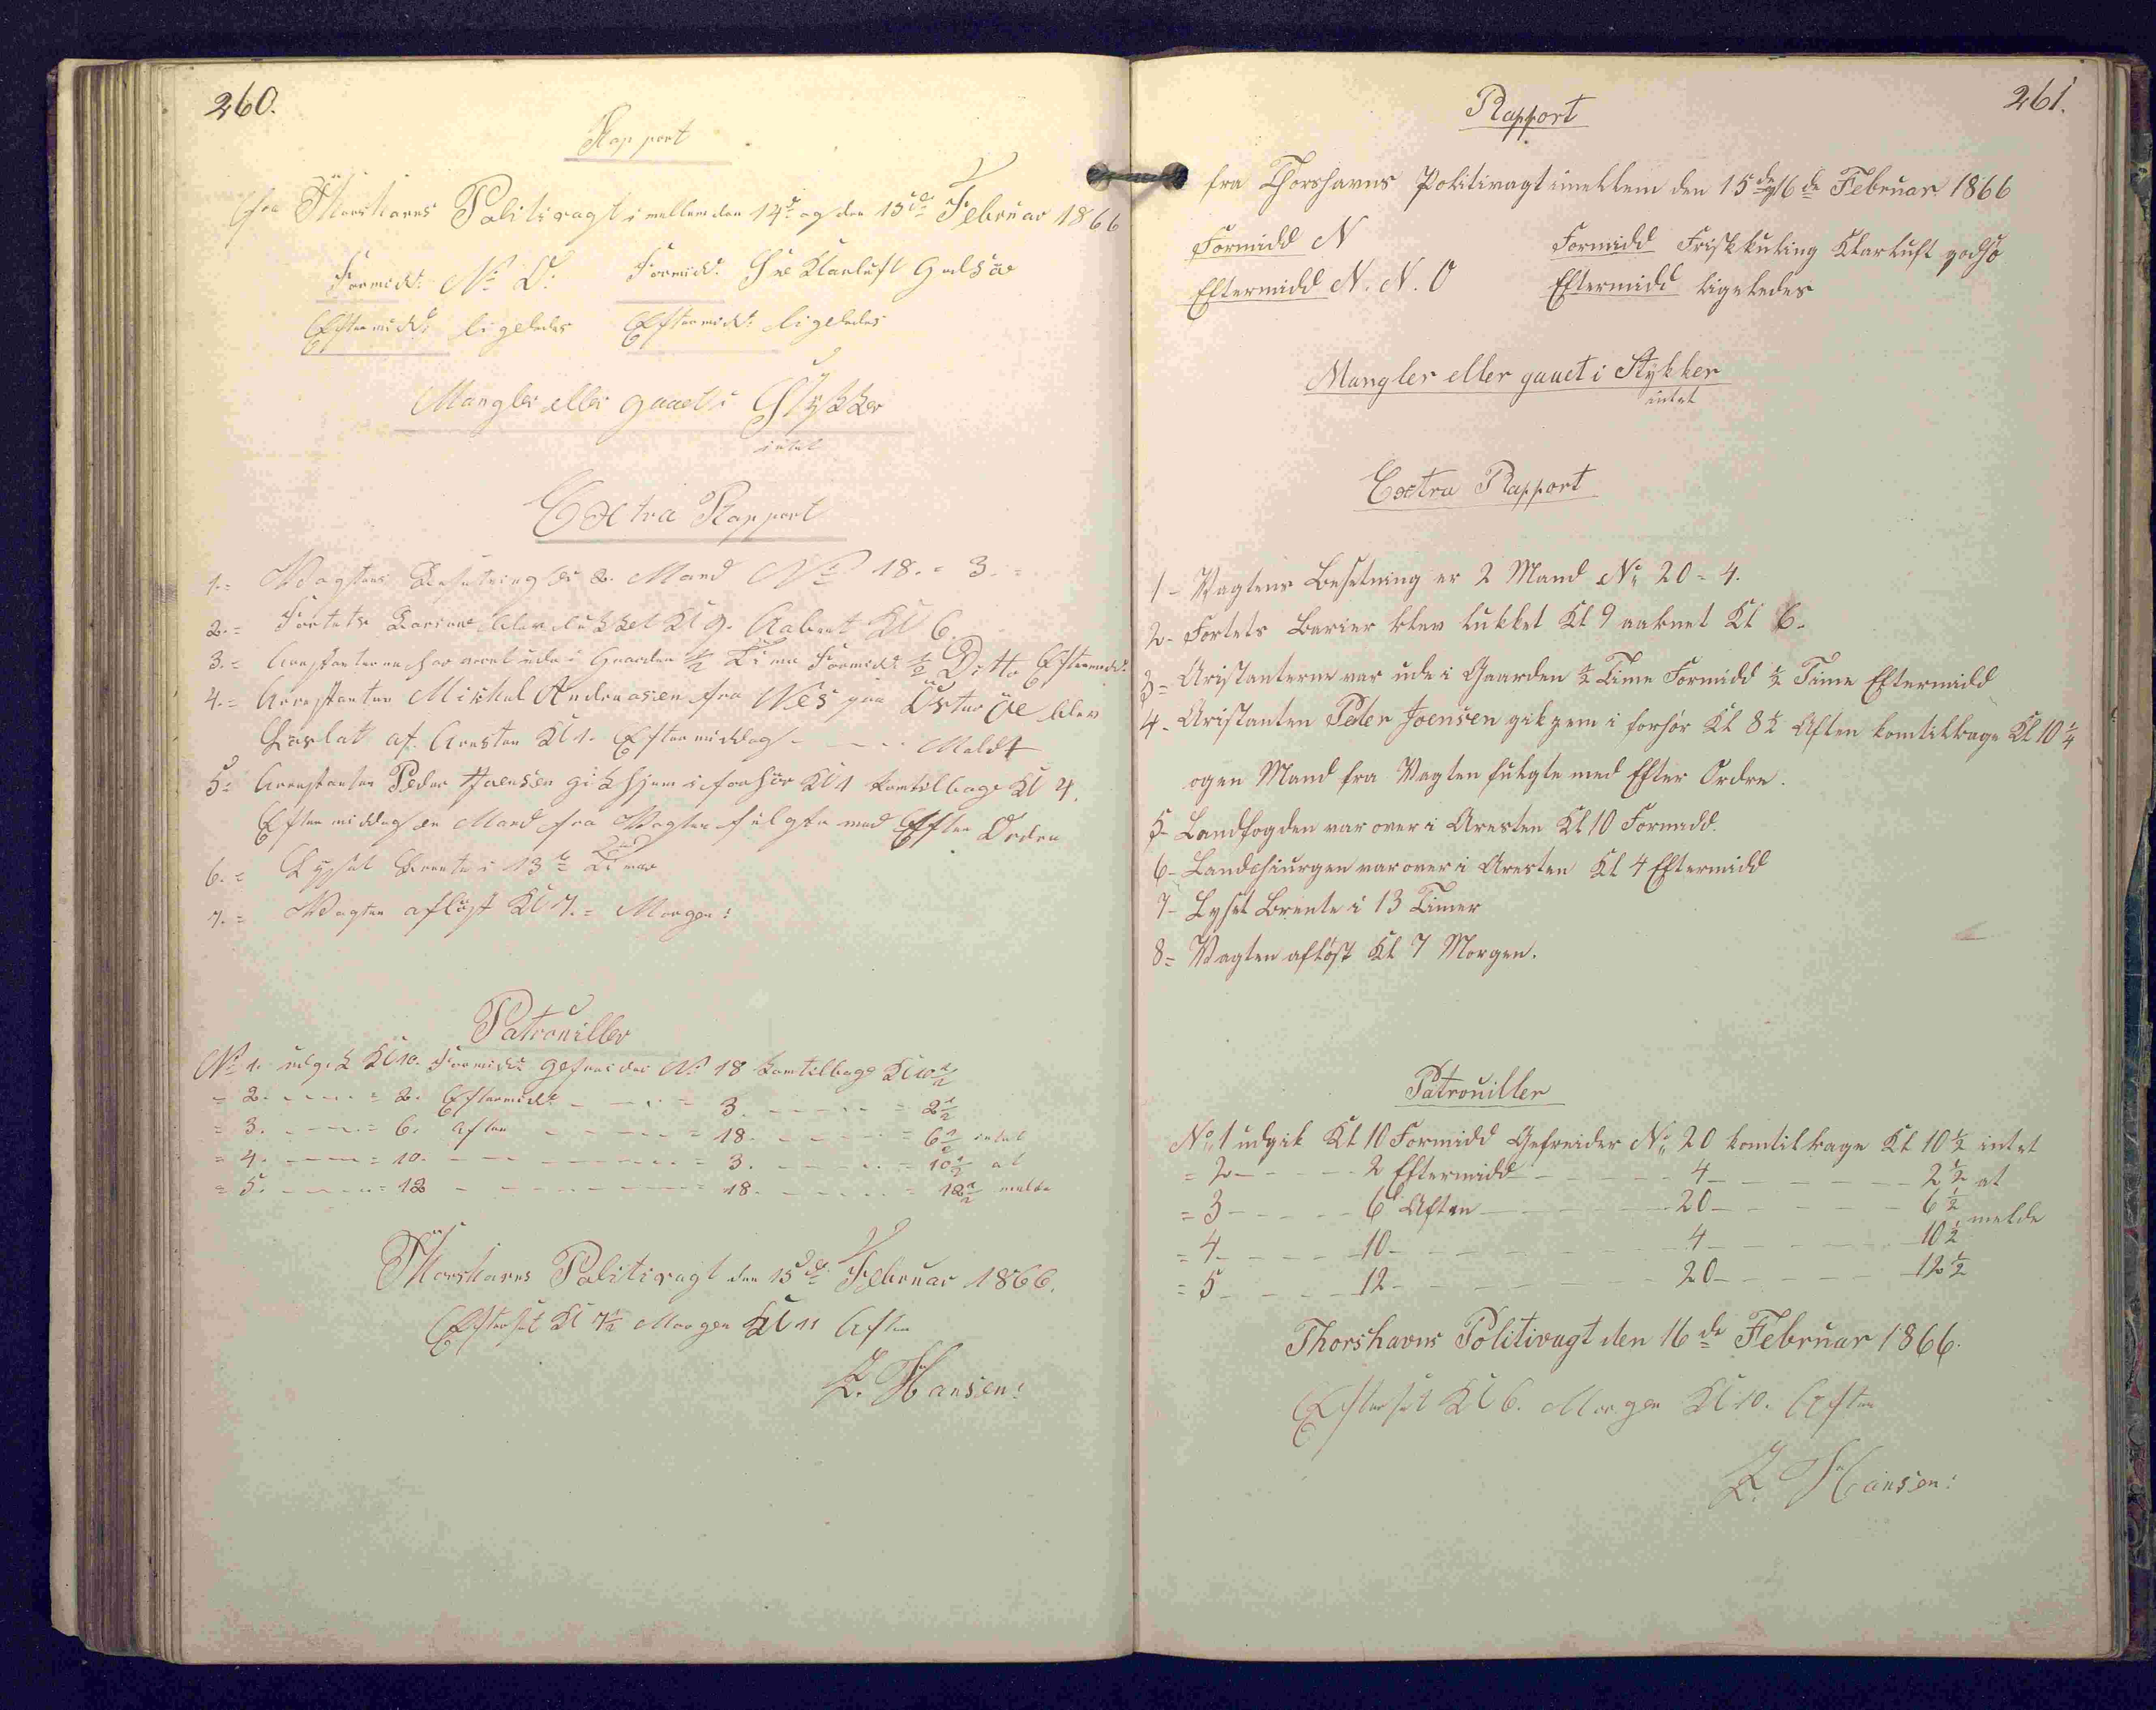 260.
Rapport
fra Thorshavns Politivagt imellem den 14de og den 15de Februar 1866
Formidd: N. O. Formidd: Klarluft Godsöe
Eftermidd: ligeledes Eftermidd: ligeledes
Mangler eller gaaet i Stykker
intet
Extra Rapport
1. = Vagtens Besetning er 2. Mand No 18. = 3. =
2. = Fortets Bariere blev lukket Kl 9. Aabnet Kl 6.
3. = Arrestanterne har veret ude i Gaarden 1/2 Time Formidd: 1/2 Ditto Eftermidd:
4. = Arrestanten Mikkal Andreasien fra Nes paa Österöe blev
Löslat af Aresten Kl 1. Eftermiddag Meldt
5. = Arrestanten Peder Joensen gik hjem i forhör Kl 1 kom tilbage Kl 4.
Eftermiddag en Mand fra Vagten fulgte med Efter Orden
6. = Lyset Brente i 13 Timer
7. = Vagten aflöst Kl 7. = Morgen:
Patrouiller
No 1. udgik Kl 10. Formidd: Gefreider No 18 kom tilbage Kl 10 1/2
= 2. - - - = 2. Eftermidd: - - - 3. - - - = 2 1/2
= 3. - - - = 6. Aften - - - = 18. - - - = 6 1/2 intet
= 4. - - - = 10. - - - = 3. - - - = 10 1/2 at
= 5. - - - = 12 - - - = 18. - - - = 12 1/2 melde
Thorshavns Politivagt den 15de Februar 1866.
Efterset Kl 7 1/2 Morgen Kl 11 Aften
Z. Hansen:
261.
Rapport
fra Thorshavns Politivagt imellem den 15de og 16de Februar 1866
Formidd N Formidd Friskkuling Klarluft godsö
Eftermidd N. N. O Eftermidd ligeledes
Mangler eller gaaet i Stykker
intet
Extra Rapport
1 - Vagtens Besetning er 2 Mand No 20 = 4.
2 - Fortets Barier blev lukket Kl 9 aabnet Kl 6.
3 = Aristanterne var ude i Gaarden 1/2 Time Formidd 1/2 Time Eftermidd
4 - Aristanten Peder Joensen gik hjem i forhør Kl 8 1/2 Aften kom tilbage Kl 10 1/4
og en Mand fra Vagten fulgte med Efter Ordre.
5 - Landfogden var over i Aresten Kl 10 Formidd.
6 - Landchiurgen var over i Aresten Kl 4 Eftermidd
7 - Lyset Brente i 13 Timer
8 = Vagten afløst Kl 7 Morgen.
Patrouiller
No 1 udgik Kl 10 Formidd Gefreider No 20 kom tilbage Kl 10 1/2 intet
= 2 - - - 2 Eftermidd - - - 4 - - - 2 1/2 at
= 3 - - - 6 Aften - - - 20 - - - 6 1/2 melde
= 4 - - - 10 - - - 4 - - - 10 1/2
= 5 - - - 12 - - - 20 - - - 12 1/2
Thorshavns Politivagt den 16de Februar 1866.
Efterset Kl 6. Morgen Kl 10. Aften
Z. Hansen: